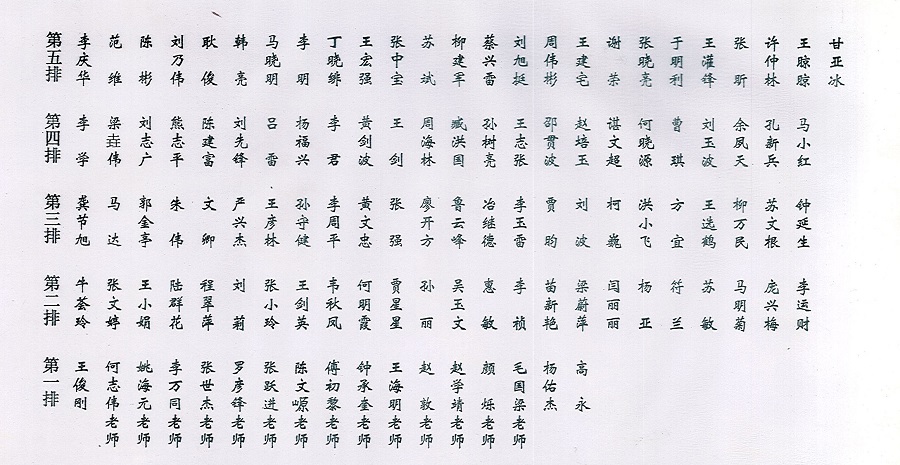 第五排 李庆华 范维 陈彬 刘乃伟 耿俊 韩亮 马晓明 李明 丁晓 王宏强 张中宝 苏斌 柳建军 蔡兴雷 刘旭挺 周伟彬 王建宅 谢荣 张晓亮 于明利 王灌锋 张昕 许仲林 王晾晾 甘亚冰
第四排 李学 梁垚伟 刘志广 熊志平 陈建富 刘先锋 吕雷 杨福兴 李君 黄剑波 王剑 周海林 臧洪国 孙树亮 王志张 邵贯波 赵培玉 谌文超 何晓源 曹琪 刘玉波 余凤天 孔新兵 马小红
第三排 龚节旭 马达 郭金亭 朱伟 文卿 严兴杰 王彦林 孙守健 李周平 黄文忠 张强 廖开方 鲁云峰 冶继德 李玉雷 贾昀 刘波 柯巍 洪小飞 方宜 王选鹤 柳万民 苏文根 钟延生
第二排 牛荟玲 张文婷 王小娟 陆群花 程翠萍 刘莉 张小玲 王剑英 韦秋凤 何明霞 贾星星 孙丽 吴玉文 惠敏 李祯 苗新艳 梁蔚萍 闫丽丽 杨亚 符兰 苏敏 马明菊 庞兴梅 李运财
第一排 王俊刚 何志伟老师 姚海元老师 李万同老师 张世杰老师 罗彦锋老师 张跃进老师 陈文嫄老师 傅初黎老师 钟承奎老师 王海明老师 赵敦老师 赵学靖老师 颜烁老师 毛国梁老师 杨佑杰 高永